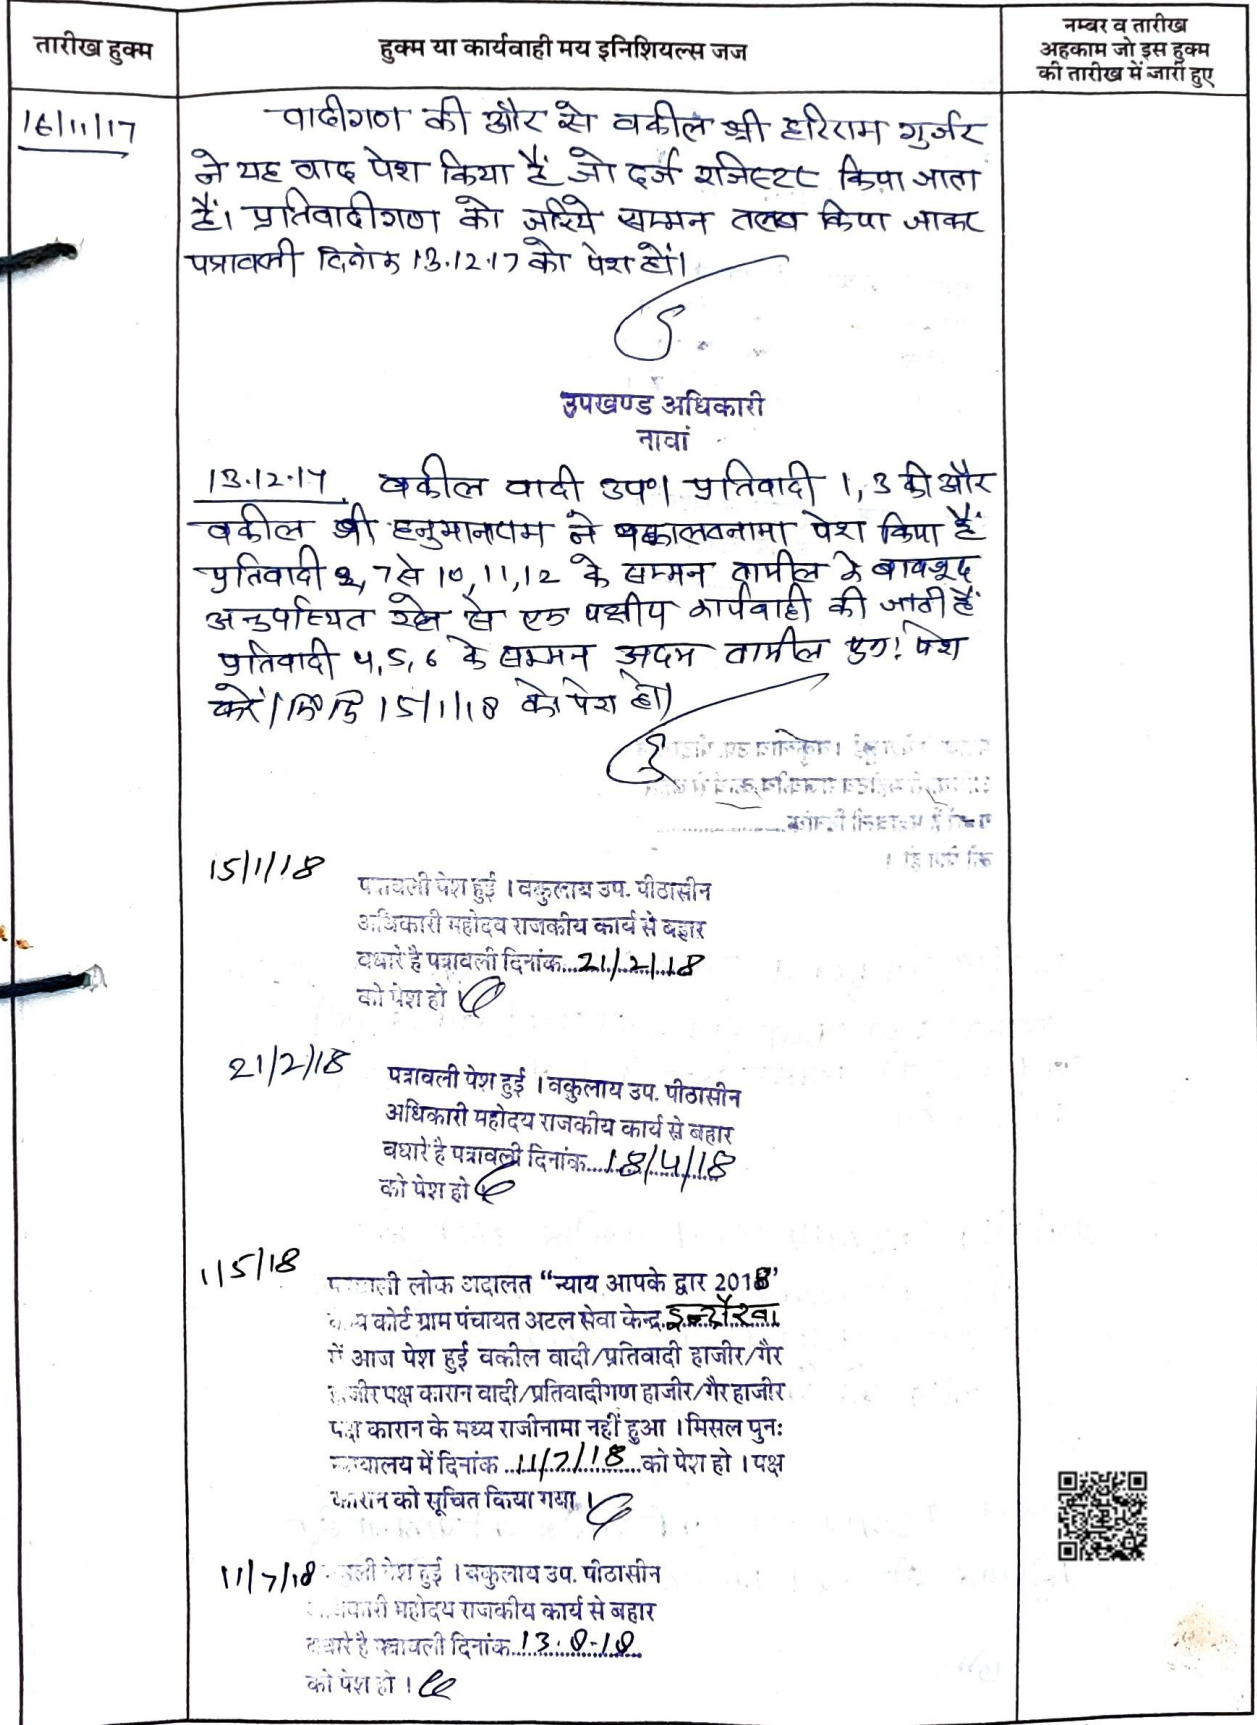 तारीख हुक्म
हुक्म या कार्यवाही मय इनिशियल्स जज
नम्बर व तारीख
अहकाम जो इस हुक्म
की तारीख में जारी हुए
16/11/17
वादीगण की और से वकील श्री हरिराम गुर्जर
ने यह वाद पेश किया हैं जो दर्ज रजिस्टर किया जाता
हैं। प्रतिवादीगण को जरिये सम्मन तलब किया जाकर
पत्रावली दिनांक 13.12.17 को पेश हों।
उपखण्ड अधिकारी
नावां
13.12.17. वकील वादी उप०। प्रतिवादी 1,3 की और
वकील श्री हनुमानराम ने वकालतनामा पेश किया हैं
प्रतिवादी 2, 7 से 10, 11, 12 के सम्मन तामील के बावजूद
अनुपस्थित रहने से एक पक्षीय कार्यवाही की जाती हैं
प्रतिवादी 4, 5, 6 के सम्मन अदम तामील पेश
करें। 15/1/18 को पेश हो।
15/1/18
पत्रावली पेश हुई । वकुलाय उप. पीठासीन
अधिकारी महोदय राजकीय कार्य से बहार
बधारे है पत्रावली दिनांक...21/2/18
को पेश हो ।
21/2/18
पत्रावली पेश हुई । वकुलाय उप. पीठासीन
अधिकारी महोदय राजकीय कार्य से बहार
बधारें है पत्रावली दिनांक...18/4/18
को पेश हो
1/5/18
पत्रावली लोक अदालत “न्याय आपके द्वार 2018”
कोर्ट ग्राम पंचायत अटल सेवा केन्द्र
में आज पेश हुई वकील वादी/प्रतिवादी हाजीर/गैर
हाजीर पक्ष कारान वादी/प्रतिवादीगण हाजीर/गैर हाजीर
पक्ष कारान के मध्य राजीनामा नहीं हुआ । मिसल पुनः
न्यायालय में दिनांक ...11/7/18...को पेश हो । पक्ष
कारान को सूचित किया गया ।
11/7/18
पत्रावली पेश हुई । वकुलाय उप. पीठासीन
अधिकारी महोदय राजकीय कार्य से बहार
बधारे है पत्रावली दिनांक...13.8.18
को पेश हो ।